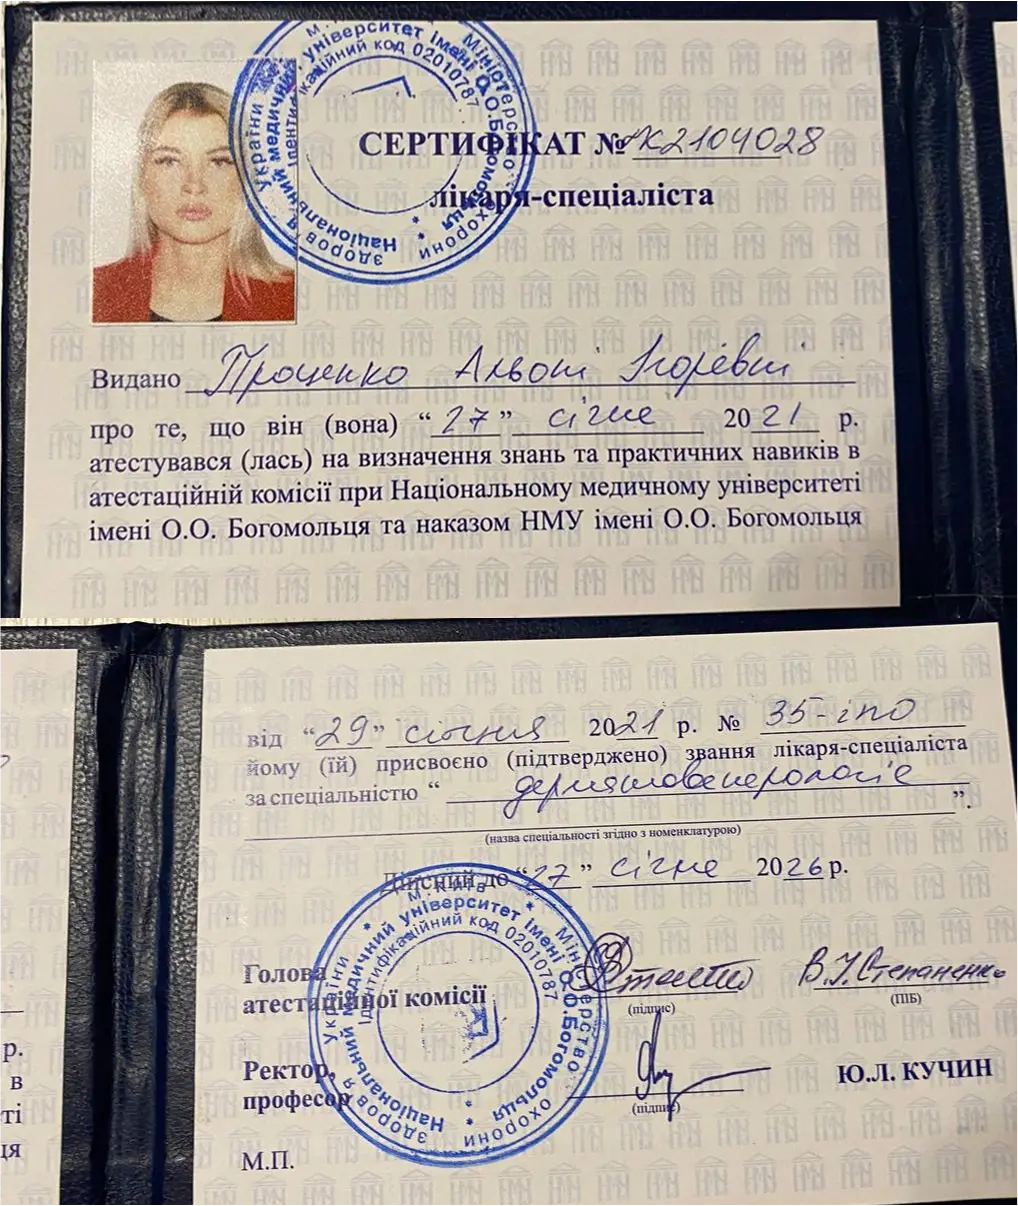 СЕРТИФІКАТ № К2104028
лікаря-спеціаліста
Видано Проценко Альоні Ігорівні
про те, що він (вона) “27” січне 2021 р.
атестувався (лась) на визначення знань та практичних навиків в
атестаційній комісії при Національному медичному університеті
імені О.О. Богомольця та наказом НМУ імені О.О. Богомольця
Міністерство охорони здоров'я України
Національний медичний університет імені О.О.Богомольця
Ідентифікаційний код 02010787
від “29” січня 2021 р. № 35-іпо
йому (їй) присвоєно (підтверджено) звання лікаря-спеціаліста
за спеціальністю “ дерматовенерологіє
”.
(назва спеціальності згідно з номенклатурою)
Дійсний до “27” січне 2026 р.
Голова
атестаційної комісії
В.І.Степаненко
(підпис) (ПІБ)
Ректор,
професор Ю.Л. КУЧИН
(підпис)
М.П.
м.Київ
Міністерство охорони здоров'я України
Національний медичний університет імені О.О.Богомольця
Ідентифікаційний код 02010787
р.
в
ті
ця